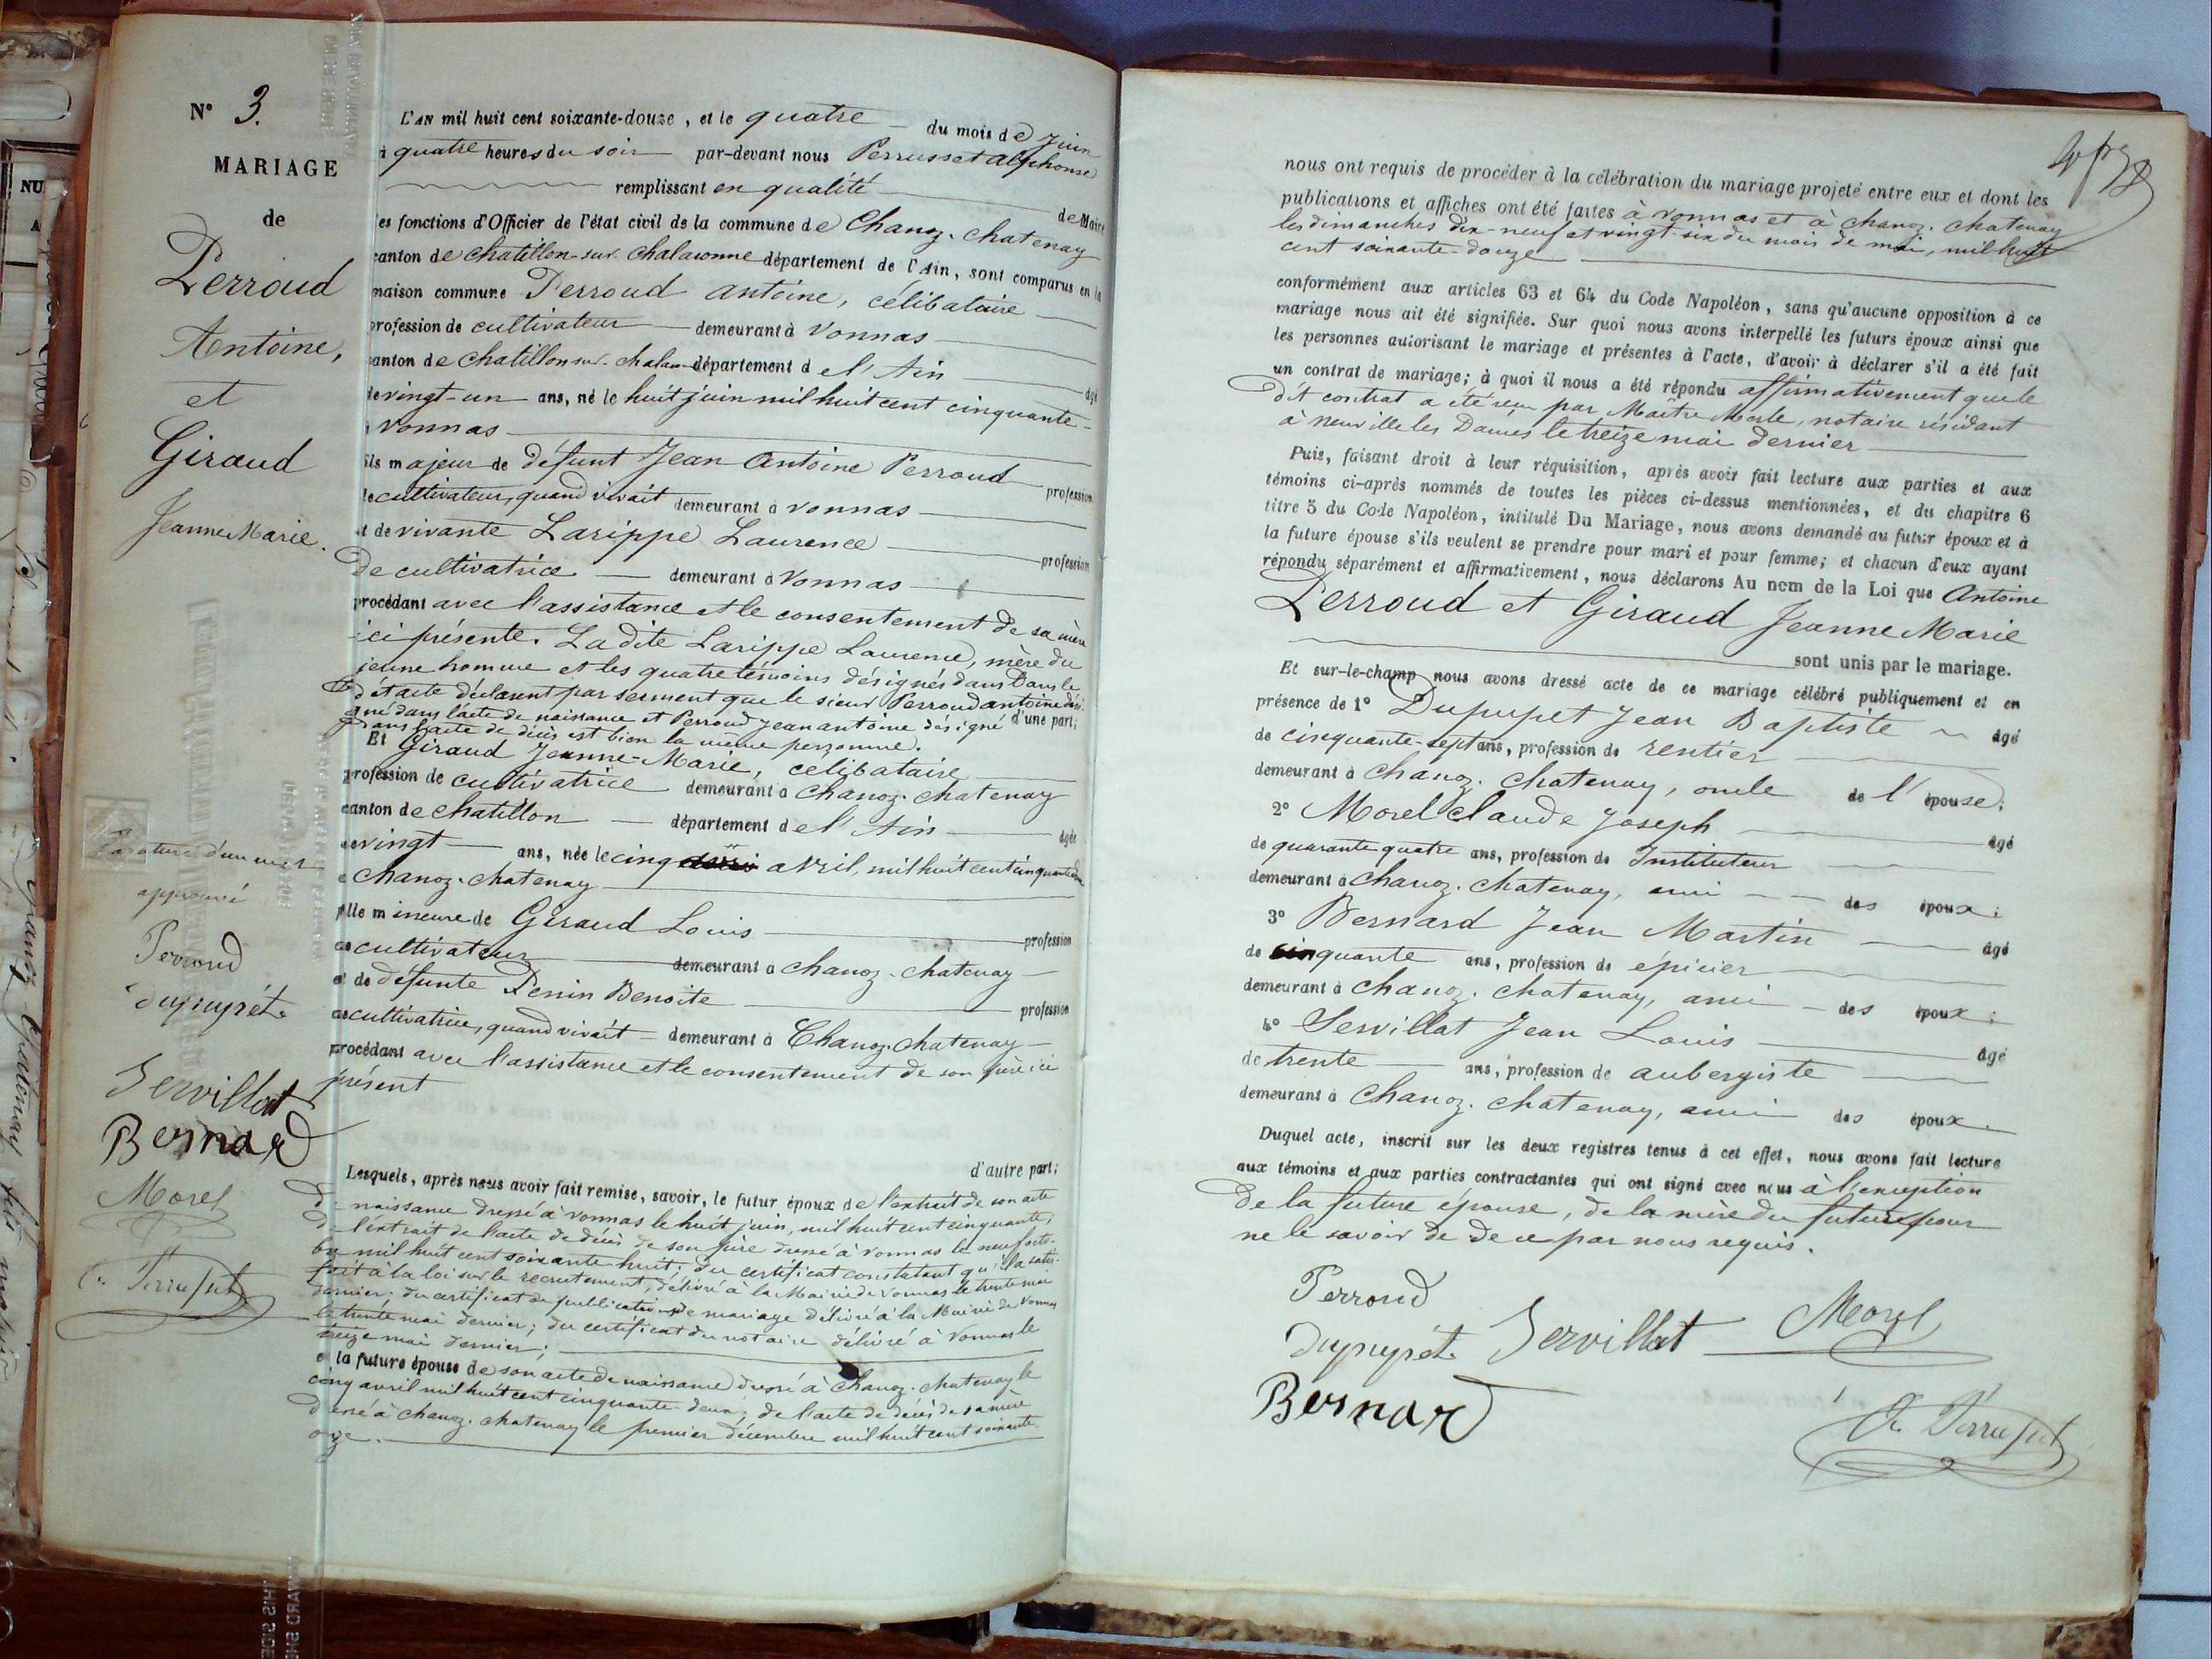 N° 3.
MARIAGE
de
Perroud
Antoine,
et
Giraud
Jeanne Marie.
Rature d'un mot
approuvé
Perroud
Dupupét
Servillat
Bernard
Morel
A. Perrusset
L'AN mil huit cent soixante-douze, et le quatre du mois de Juin
à quatre heures du soir par-devant nous Perrusset Alphonse
remplissant en qualité de Maire
les fonctions d'Officier de l'état civil de la commune de Chanoz-Chatenay
canton de Chatillon-sur-Chalaronne département de l'Ain, sont comparus en la
maison commune Perroud Antoine, célibataire
profession de cultivateur demeurant à Vonnas
canton de Chatillon-sur-Chalar. département de l'Ain âgé
de vingt-un ans, né le huit juin mil huit cent cinquante
à Vonnas
fils majeur de défunt Jean Antoine Perroud profession
de cultivateur, quand vivait demeurant à Vonnas
et de vivante Larippe Laurence profession
de cultivatrice demeurant à Vonnas
procédant avec l'assistance et le consentement de sa mère
ici présente. La dite Larippe Laurence, mère du
jeune homme et les quatre témoins désignés dans Dans le
dit acte déclarent par serment que le sieur Perroud antoine dési-
gné dans l'acte de naissance et Perroud Jean antoine désigné d'une part;
dans l'acte de décès est bien la même personne.
Et Giraud Jeanne-Marie, célibataire
profession de cultivatrice demeurant à Chanoz-Chatenay
canton de Chatillon département de l'Ain âgée
de vingt ans, née le cinq avril, mil huit cent cinquante deux
à Chanoz-Chatenay
fille mineure de Giraud Louis profession
de cultivateur demeurant à Chanoz-Chatenay
et de défunte Penin Benoite profession
de cultivatrice, quand vivait demeurant à Chanoz-Chatenay
procédant avec l'assistance et le consentement de son père ici
présent
d'autre part;
Lesquels, après nous avoir fait remise, savoir, le futur époux de l'extrait de son acte
de naissance dressé à Vonnas le huit juin, mil huit cent cinquante;
de l'extrait de l'acte de décès de son père dressé à Vonnas le neuf octo-
bre mil huit cent soixante huit; du certificat constatant qu'il a satis-
fait à la loi sur le recrutement, délivré à la Mairie de Vonnas le trente mai
dernier; du certificat de publications de mariage délivré à la Mairie de Vonnas
le trente mai dernier; du certificat du notaire délivré à Vonnas le
treize mai dernier;
et la future épouse de son acte de naissance dressé à Chanoz-Chatenay le
cinq avril mil huit cent cinquante-deux; de l'acte de décès de sa mère
dressé à Chanoz-Chatenay le premier décembre mil huit cent soixante
onze.
nous ont requis de procéder à la célébration du mariage projeté entre eux et dont les
publications et affiches ont été faites à Vonnas et à Chanoz-Chatenay
les dimanches dix-neuf et vingt-six du mois de mai, mil huit
cent soixante-douze
conformément aux articles 63 et 64 du Code Napoléon, sans qu'aucune opposition à ce
mariage nous ait été signifiée. Sur quoi nous avons interpellé les futurs époux ainsi que
les personnes autorisant le mariage et présentes à l'acte, d'avoir à déclarer s'il a été fait
un contrat de mariage; à quoi il nous a été répondu affirmativement que le
dit contrat a été reçu par Maître Morle, notaire résidant
à Neuville les Dames le treize mai dernier
Puis, faisant droit à leur réquisition, après avoir fait lecture aux parties et aux
témoins ci-après nommés de toutes les pièces ci-dessus mentionnées, et du chapitre 6
titre 5 du Code Napoléon, intitulé Du Mariage, nous avons demandé au futur époux et à
la future épouse s'ils veulent se prendre pour mari et pour femme; et chacun d'eux ayant
répondu séparément et affirmativement, nous déclarons Au nom de la Loi que Antoine
Perroud et Giraud Jeanne Marie
sont unis par le mariage.
Et sur-le-champ nous avons dressé acte de ce mariage célébré publiquement et en
présence de 1° Dupupet Jean Baptiste âgé
de cinquante-sept ans, profession de rentier
demeurant à Chanoz-Chatenay, oncle de l'épouse;
2° Morel Claude Joseph âgé
de quarante-quatre ans, profession de Instituteur
demeurant à Chanoz-Chatenay, ami des époux;
3° Bernard Jean Martin âgé
de cinquante ans, profession de épicier
demeurant à Chanoz-Chatenay, ami des époux;
4° Servillat Jean Louis âgé
de trente ans, profession de aubergiste
demeurant à Chanoz-Chatenay, ami des époux.
Duquel acte, inscrit sur les deux registres tenus à cet effet, nous avons fait lecture
aux témoins et aux parties contractantes qui ont signé avec nous à l'exception
de la future épouse, de la mère du futur pour
ne le savoir de ce par nous requis.
Perroud
Dupupét Servillat Morel
Bernard
A. Perrusset